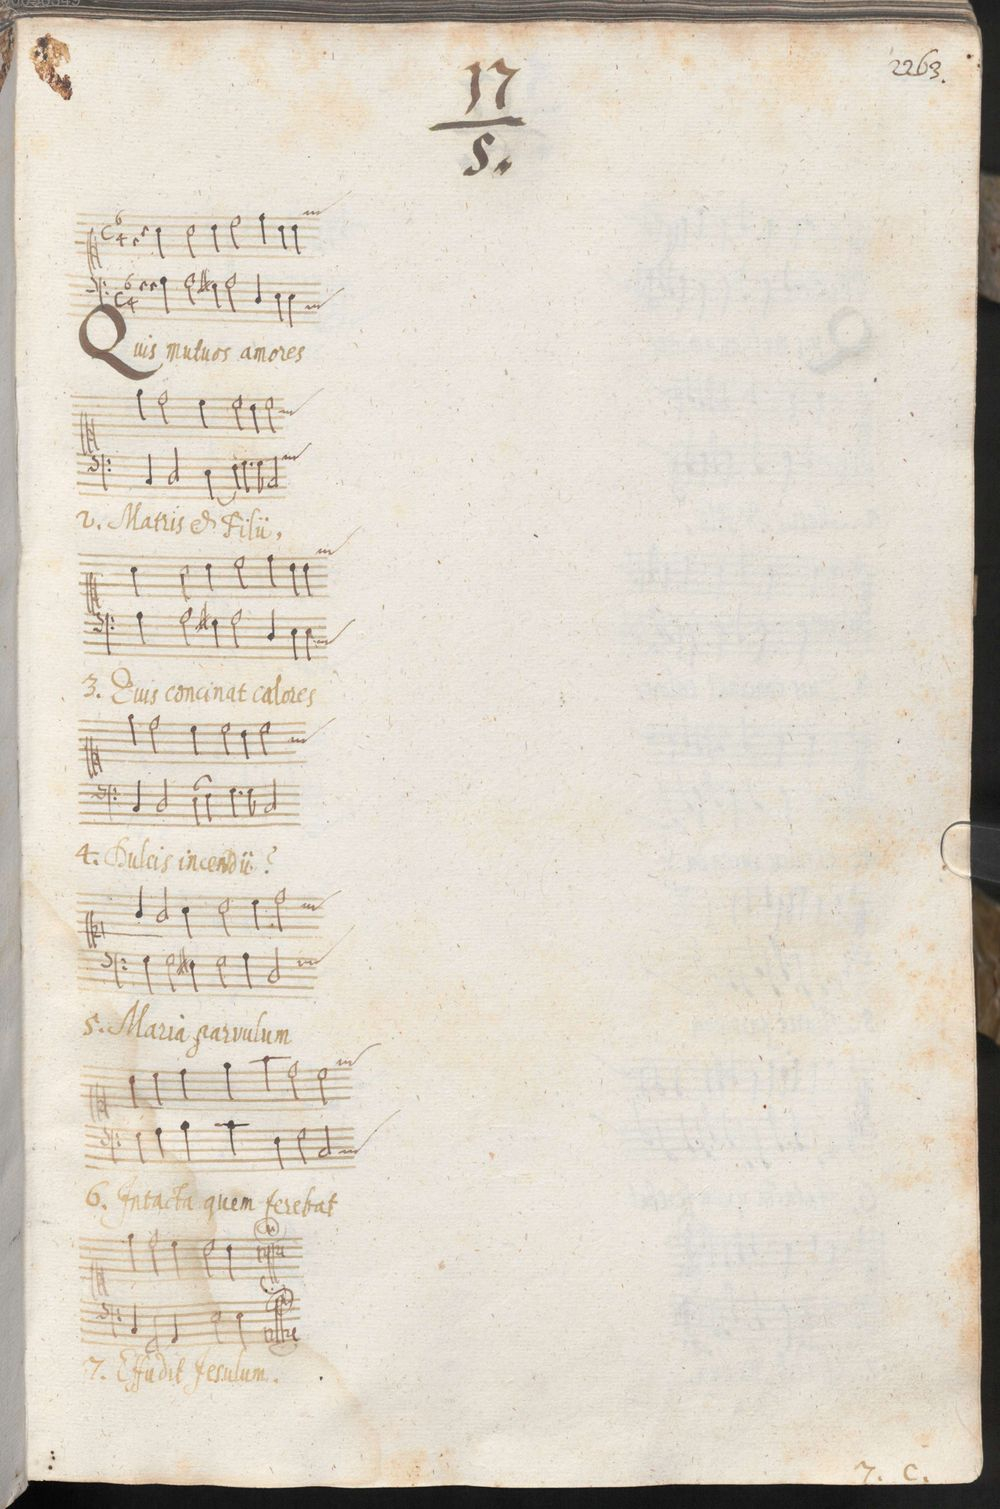 2263.
17
5.
Quis mutuos amores
2. Matris & Filii,
3. Quis concinat calores
4. Dulcis incendii?
5. Maria parvulum
6. Intacta quem ferebat
7. Effudit Jesulum.
7. C.